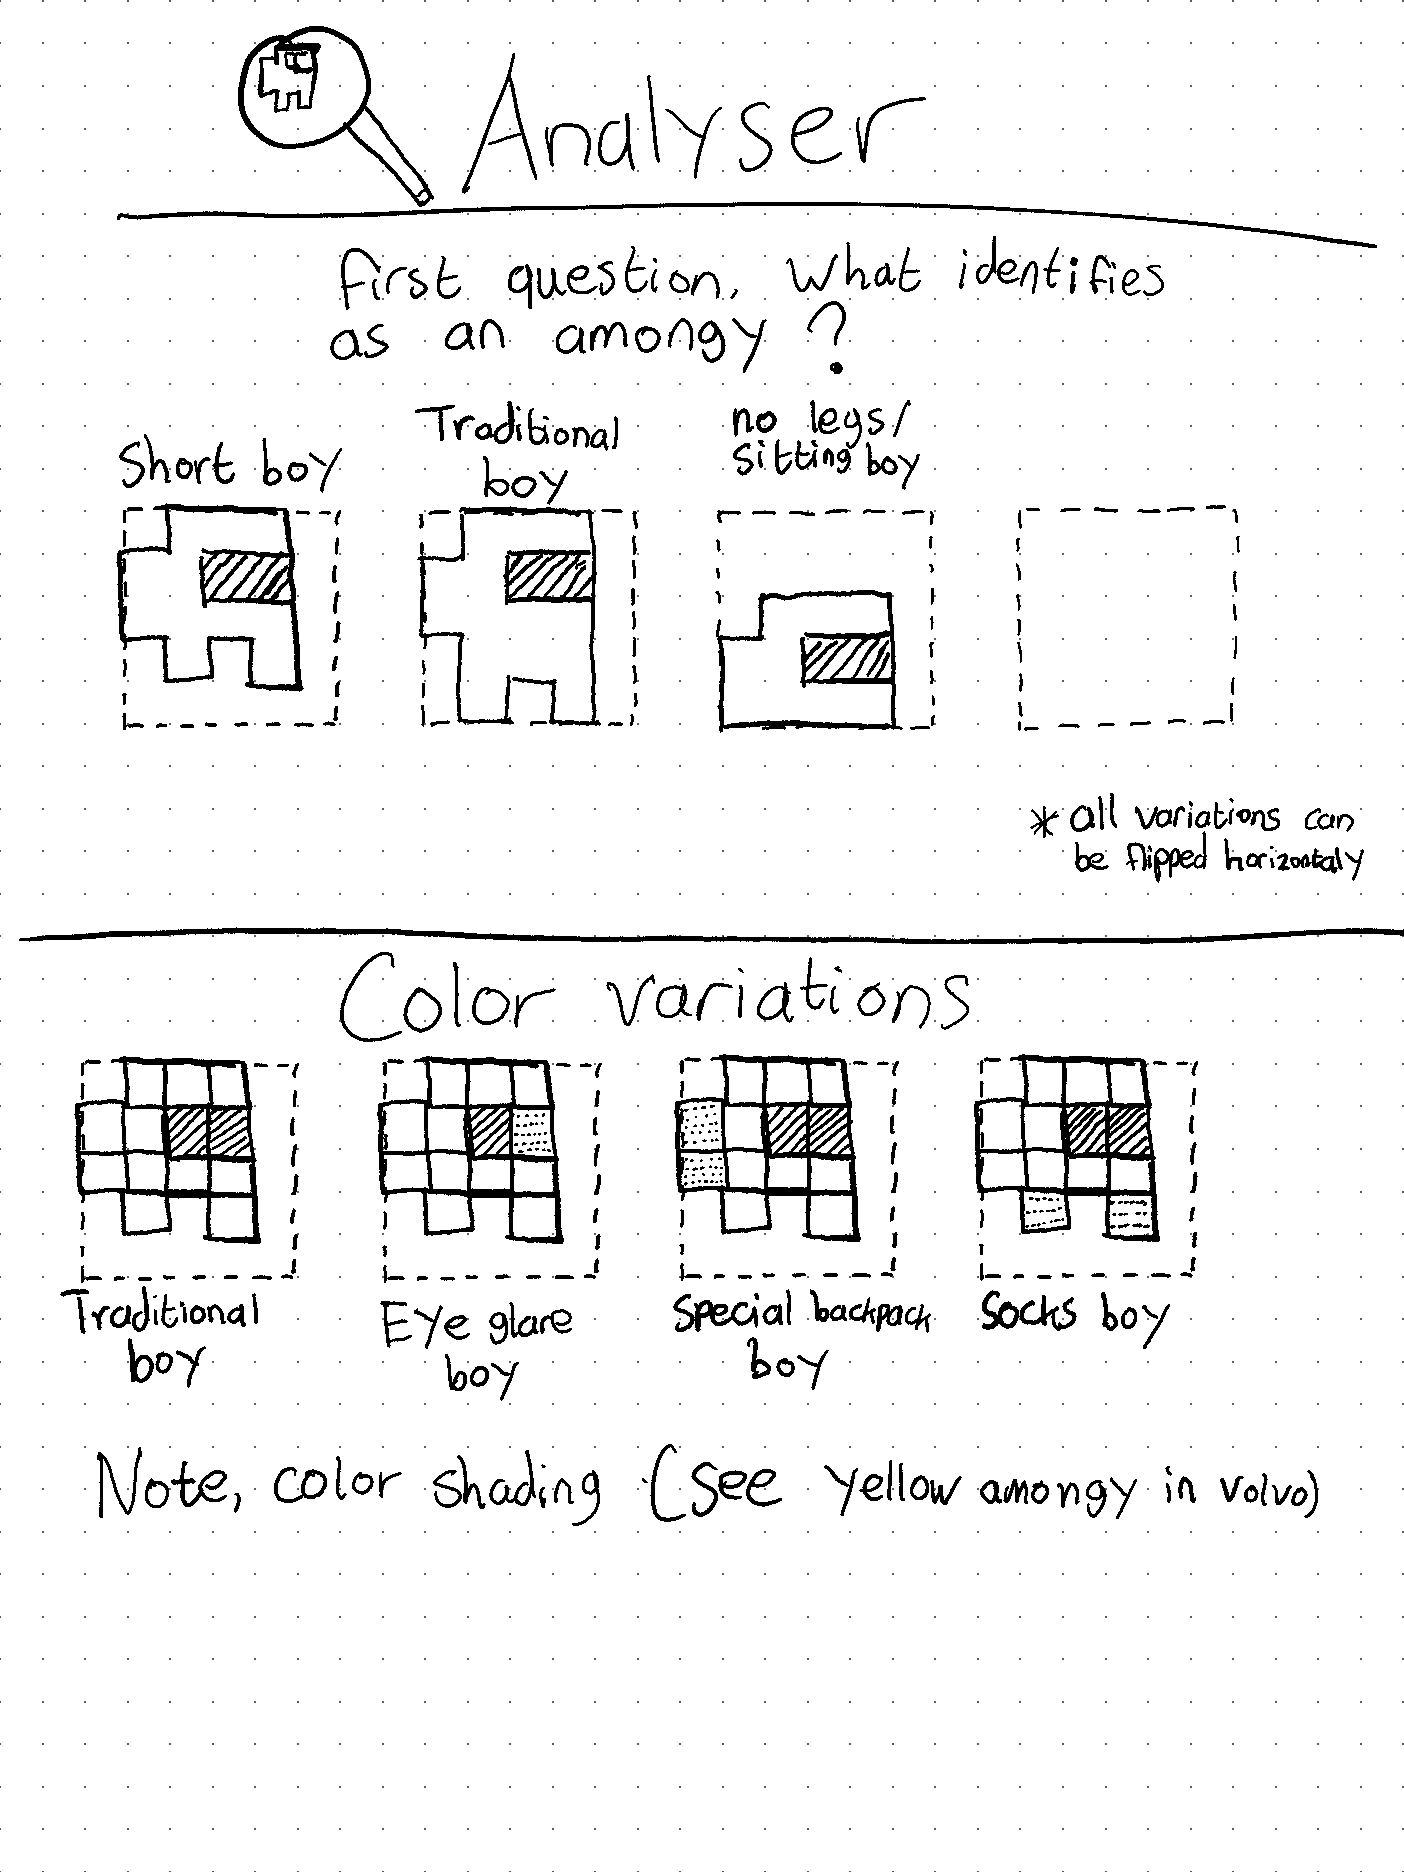 Analyser
first question, what identifies
as an amongy ?
Short boy
Traditional
boy
no legs/
sitting boy
* all variations can
be flipped horizontaly
Color variations
Traditional
boy
Eye glare
boy
Special backpack
boy
Socks boy
Note, color shading (see yellow amongy in volvo)